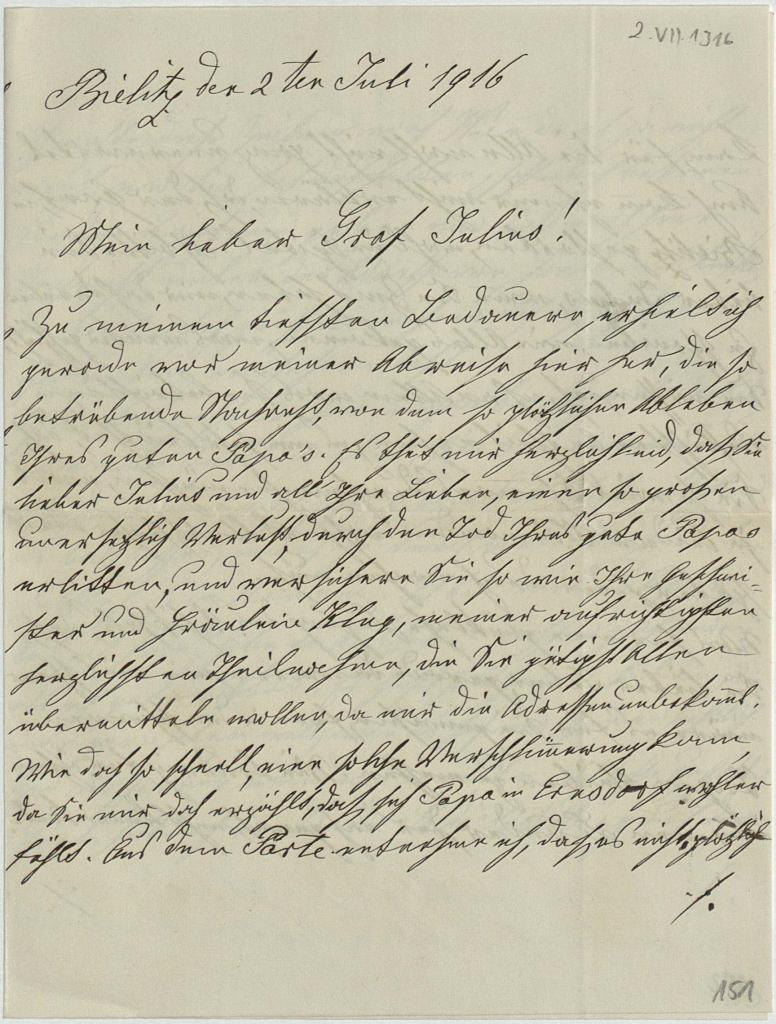 2.VII.1916
Bielitz den 2ten Juli 1916
Mein lieber Graf Julius!
Zu meinem tiefsten Bedauern, erhielt ich
gerade vor meiner Abreise hier her, die so
betrübende Nachricht, von dem so plötzlichen Ableben
Ihres guten Papa's. Es thut mir herzlich leid, daß Sie
lieber Julius und all' Ihre Lieben, einen so großen
unersetzlich Verlust, durch den Tod Ihres gute Papas
erlitten, und versichere Sie so wie Ihre Geschwi-
ster und Fräulein Klug, meiner aufrichtigsten
herzlichsten Theilnahme, die Sie gütigst Allen
übermitteln wollen, da mir die Adressen unbekannt.
Wie doch so schnell, eine solche Verschlimmerung kam,
da Sie mir doch erzählt, daß sich Papa in Ernsdorf wohler
fühlt. Aus dem Parte entnehme ich, daß es nicht plötzlich
./.
151